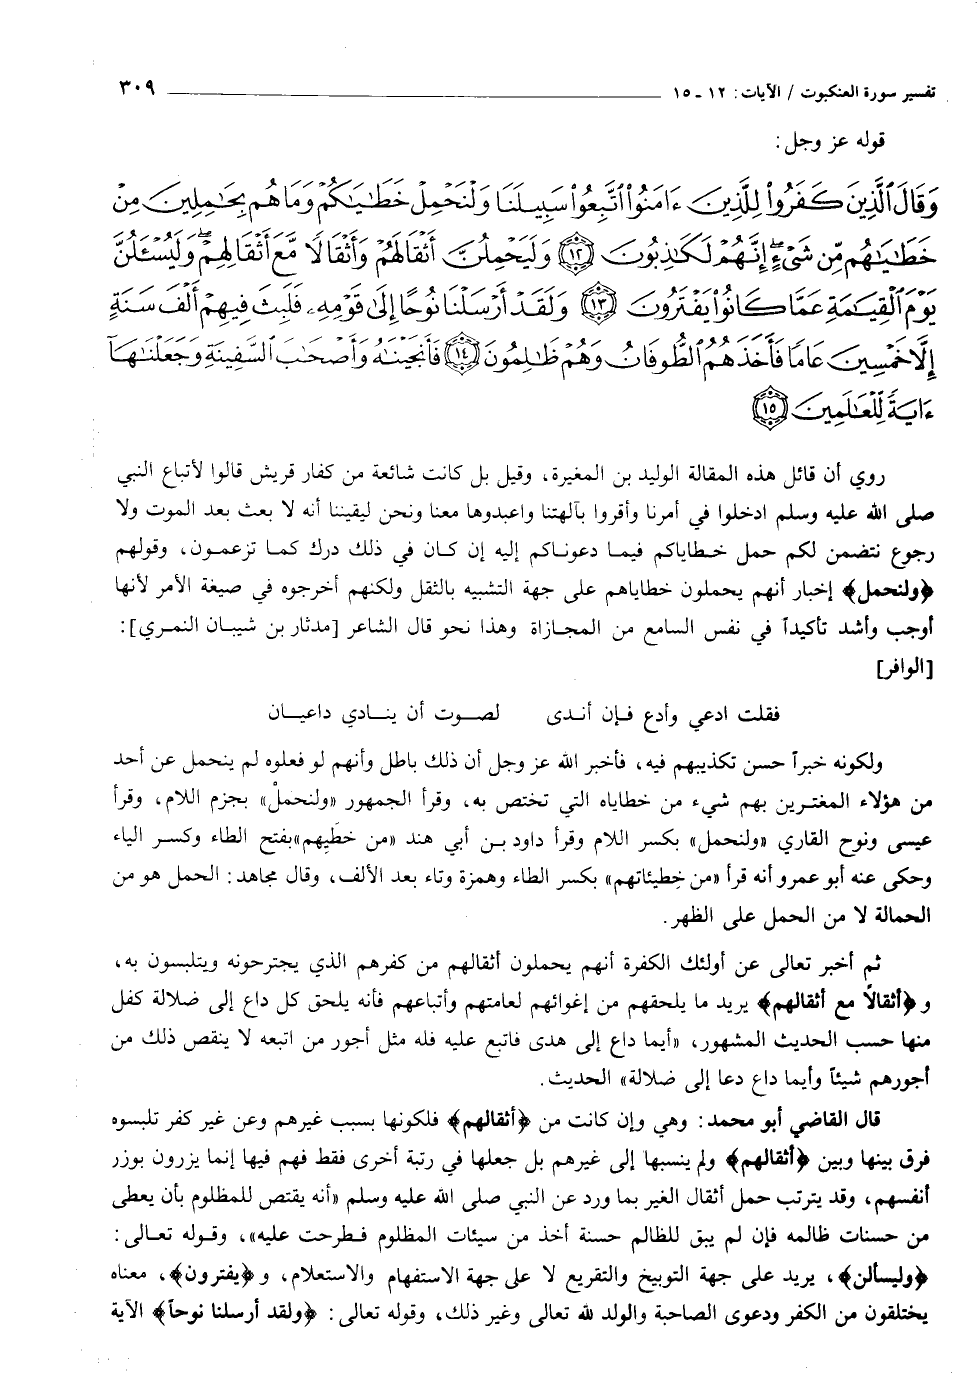 تفسير سورة العنكبوت / الآيات : ١٢ - ١٥ ٣٠٩
قوله عز وجل :
وَقَالَ ٱلَّذِينَ كَفَرُوا۟ لِلَّذِينَ ءَامَنُوا۟ ٱتَّبِعُوا۟ سَبِيلَنَا وَلْنَحْمِلْ خَطَٰيَٰكُمْ وَمَا هُم بِحَٰمِلِينَ مِنْ
خَطَٰيَٰهُم مِّن شَىْءٍ إِنَّهُمْ لَكَٰذِبُونَ ﴿١٢﴾ وَلَيَحْمِلُنَّ أَثْقَالَهُمْ وَأَثْقَالًا مَّعَ أَثْقَالِهِمْ وَلَيُسْـَٔلُنَّ
يَوْمَ ٱلْقِيَٰمَةِ عَمَّا كَانُوا۟ يَفْتَرُونَ ﴿١٣﴾ وَلَقَدْ أَرْسَلْنَا نُوحًا إِلَىٰ قَوْمِهِۦ فَلَبِثَ فِيهِمْ أَلْفَ سَنَةٍ
إِلَّا خَمْسِينَ عَامًا فَأَخَذَهُمُ ٱلطُّوفَانُ وَهُمْ ظَٰلِمُونَ ﴿١٤﴾ فَأَنجَيْنَٰهُ وَأَصْحَٰبَ ٱلسَّفِينَةِ وَجَعَلْنَٰهَآ
ءَايَةً لِّلْعَٰلَمِينَ ﴿١٥﴾
روي أن قائل هذه المقالة الوليد بن المغيرة، وقيل بل كانت شائعة من كفار قريش قالوا لأتباع النبي
صلى الله عليه وسلم ادخلوا في أمرنا وأقروا بآلهتنا واعبدوها معنا ونحن ليقيننا أنه لا بعث بعد الموت ولا
رجوع نتضمن لكم حمل خطاياكم فيما دعوناكم إليه إن كان في ذلك درك كما تزعمون، وقولهم
﴿ولنحمل﴾ إخبار أنهم يحملون خطاياهم على جهة التشبيه بالثقل ولكنهم أخرجوه في صيغة الأمر لأنها
أوجب وأشد تأكيداً في نفس السامع من المجازاة وهذا نحو قال الشاعر [مدثار بن شيبان النمري]:
[الوافر]
فقلت ادعي وأدع فإن أندى لصوت أن ينادي داعيان
ولكونه خبراً حسن تكذيبهم فيه، فأخبر الله عز وجل أن ذلك باطل وأنهم لو فعلوه لم ينحمل عن أحد
من هؤلاء المغترين بهم شيء من خطاياه التي تختص به، وقرأ الجمهور «ولنحملْ» بجزم اللام، وقرأ
عيسى ونوح القاري «ولنحمل» بكسر اللام وقرأ داود بن أبي هند «من خطَيِهم»بفتح الطاء وكسر الياء
وحكى عنه أبو عمرو أنه قرأ «من خِطيئاتهم» بكسر الطاء وهمزة وتاء بعد الألف، وقال مجاهد: الحمل هو من
الحمالة لا من الحمل على الظهر.
ثم أخبر تعالى عن أولئك الكفرة أنهم يحملون أثقالهم من كفرهم الذي يجترحونه ويتلبسون به،
و ﴿أثقالاً مع أثقالهم﴾ يريد ما يلحقهم من إغوائهم لعامتهم وأتباعهم فأنه يلحق كل داع إلى ضلالة كفل
منها حسب الحديث المشهور، «أيما داع إلى هدى فاتبع عليه فله مثل أجور من اتبعه لا ينقص ذلك من
أجورهم شيئاً وأيما داع دعا إلى ضلالة» الحديث.
قال القاضي أبو محمد : وهي وإن كانت من ﴿أثقالهم﴾ فلكونها بسبب غيرهم وعن غير كفر تلبسوه
فرق بينها وبين ﴿أثقالهم﴾ ولم ينسبها إلى غيرهم بل جعلها في رتبة أخرى فقط فهم فيها إنما يزرون بوزر
أنفسهم، وقد يترتب حمل أثقال الغير بما ورد عن النبي صلى الله عليه وسلم «أنه يقتص للمظلوم بأن يعطى
من حسنات ظالمه فإن لم يبق للظالم حسنة أخذ من سيئات المظلوم فطرحت عليه»، وقوله تعالى :
﴿وليسألن﴾، يريد على جهة التوبيخ والتقريع لا على جهة الاستفهام والاستعلام، و﴿يفترون﴾، معناه
يختلقون من الكفر ودعوى الصاحبة والولد لله تعالى وغير ذلك، وقوله تعالى : ﴿ولقد أرسلنا نوحاً﴾ الآية